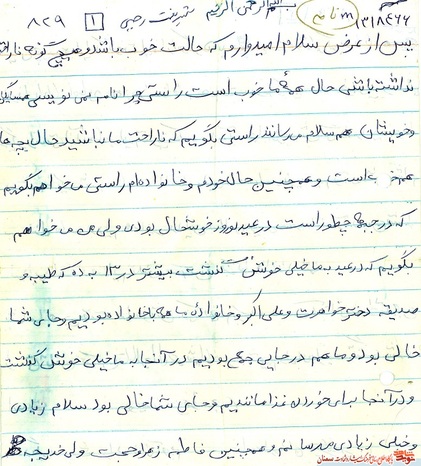 بسم الله الرحمن الرحیم
نامه
۱۳۱۸۴۶۶
۱
۸۲۹
پس از عرض سلام امیدوارم که حالت خوب باشد و هیچ گونه ناراحتی
نداشته باشی حال همۀ ما خوب است راستی چرا نامه نمی نویسی همسایگان
وخویشان هم سلام می رسانند راستی بگویم که ناراحت ما نباشید حال بچه ها
هم خوب است و همچنین حال خودم و خانواده ام راستی می خواهم بگویم
که در جبهه چطور است در عید نوروز خوشحال بودی ولی من می خواهم
بگویم که در عید به ما خیلی خوش گذشت بیشتر در ۱۳ بدر که طیبه و
صدیقه دختر خواهرت و علی اکبر و خانوادۀ ما همه با خانواده بودیم و جای شما
خالی بود و ما هم در جایی جمع بودیم در آنجا به ما خیلی خوش گذشت
و در آنجا برای خوردن غذا ماندیم و جای شما خالی بود سلام زیادی
و خیلی زیادی می رسانم و همچنین فاطمه زهرا و حجت ولی خدیجه